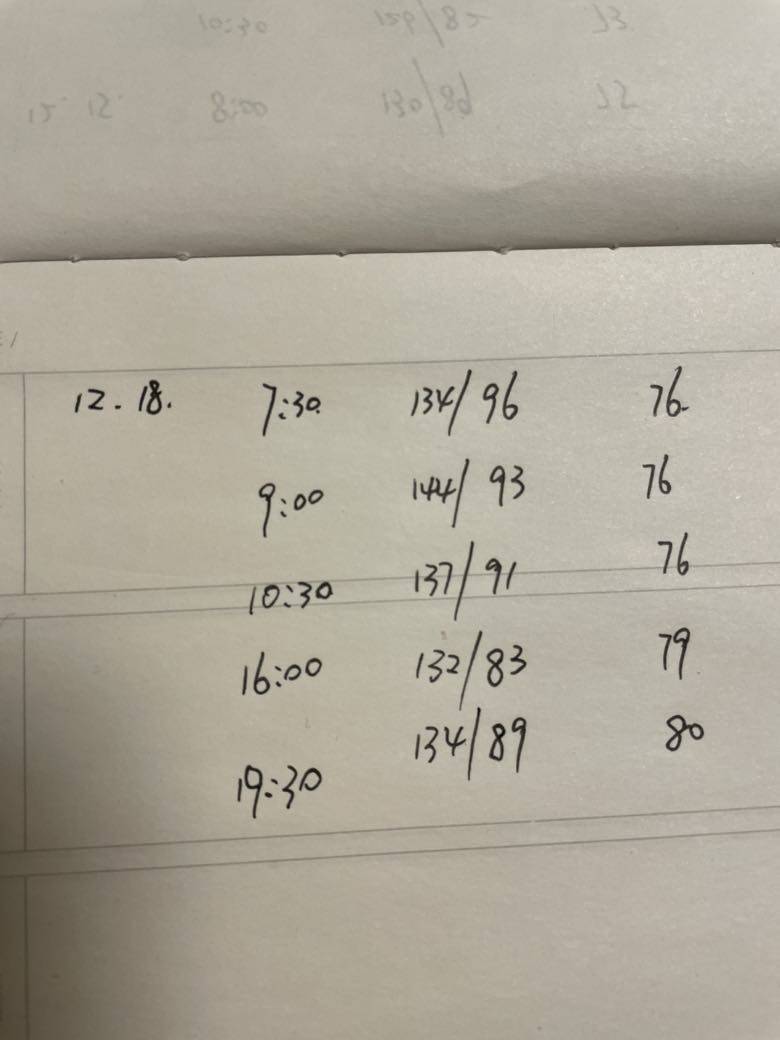 10:30 129/82 73
12.12. 8:00 130/80 72
12.18. 7:30 134/96 76
9:00 144/93 76
10:30 137/91 76
16:00 132/83 79
19:30 134/89 80